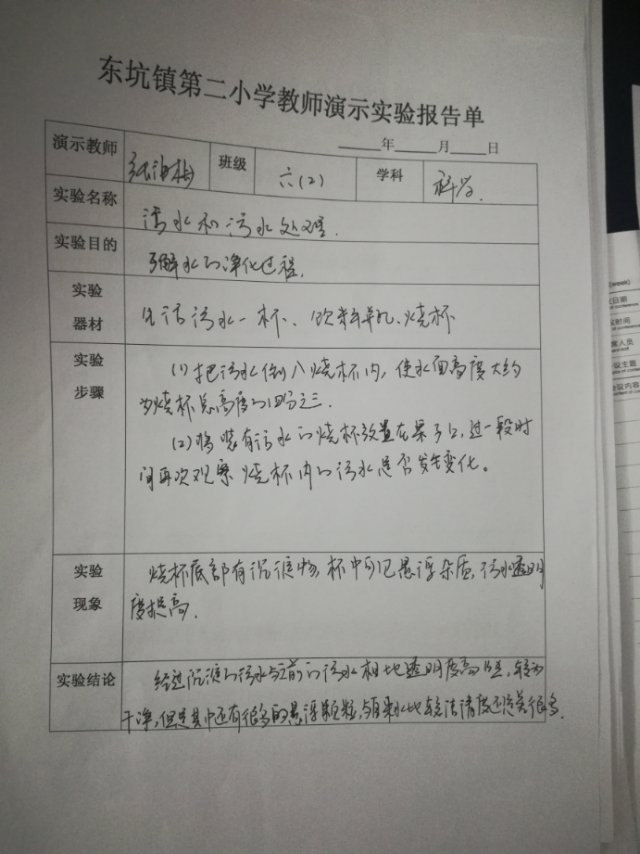 东坑镇第二小学教师演示实验报告单
年 月 日
演示教师 班级 六(2) 学科 科学
实验名称 污水和污水处理.
实验目的 了解水的净化过程.
实验器材 生活污水一杯、饮料瓶、烧杯
实验步骤 (1) 把污水倒入烧杯内,使水面高度大约
为烧杯总高度的四分之三.
(2) 将装有污水的烧杯放置在桌子上,过一段时
间再次观察烧杯内的污水是否发生变化。
实验现象 烧杯底部有沉淀物,杯中可见悬浮杂质,污水透明
度提高.
实验结论 经过沉淀的污水与之前的污水相比透明度高些,较为
干净,但是其中还有很多的悬浮颗粒,与自来水比较洁清度还差很多.